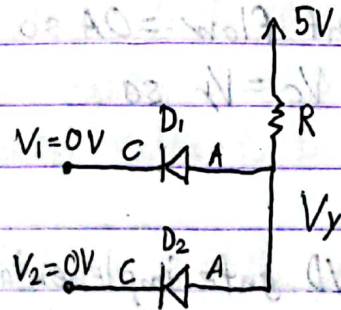 5V
D₁
R
V₁=0V C A
Vy
D₂
V₂=0V C A